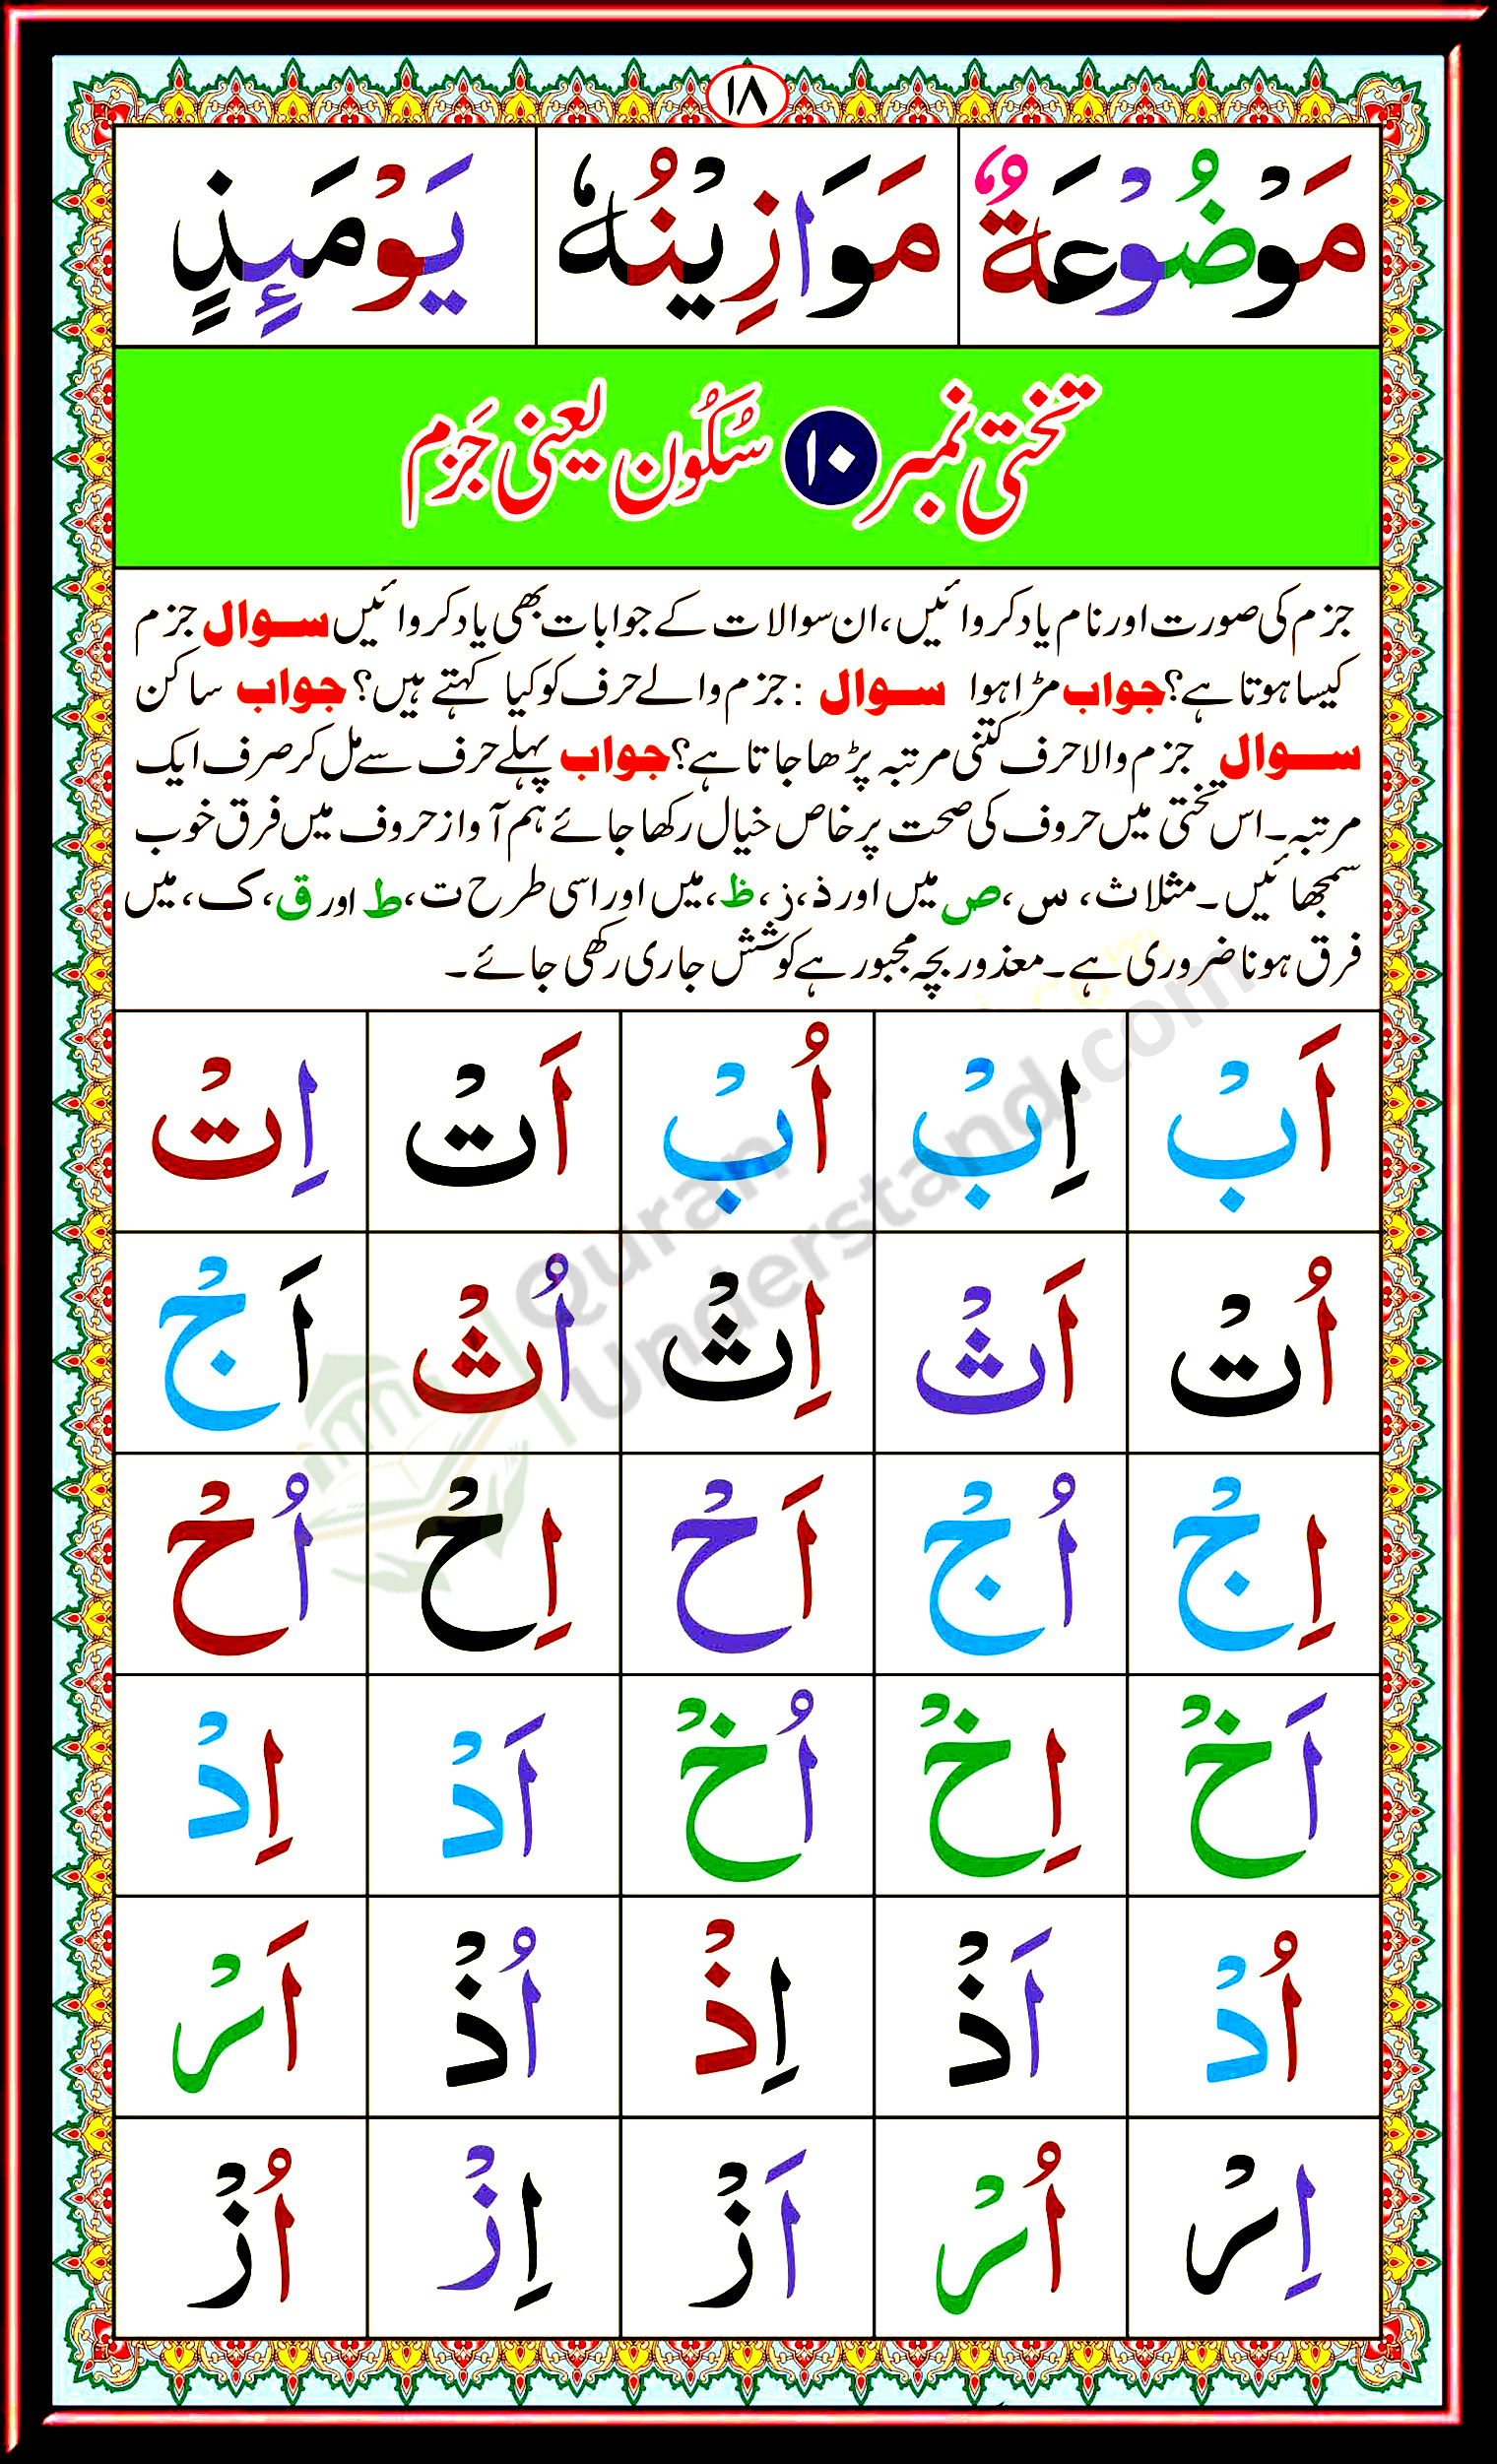 ١٨
مَوْضُوْعَةٌ مَوَازِيْنُهٗ يَوْمَئِذٍ
تختی نمبر ١٠ سُکُون یعنی جَزم
جزم کی صورت اور نام یاد کروائیں، ان سوالات کے جوابات بھی یاد کروائیں سوال جزم
کیسا ہوتا ہے؟ جواب مڑا ہوا سوال : جزم والے حرف کو کیا کہتے ہیں؟ جواب ساکن
سوال جزم والا حرف کتنی مرتبہ پڑھا جاتا ہے؟ جواب پہلے حرف سے مل کر صرف ایک
مرتبہ۔ اس تختی میں حروف کی صحت پر خاص خیال رکھا جائے ہم آواز حروف میں فرق خوب
سمجھائیں۔ مثلا ث، س، ص میں اور ذ، ز، ظ، میں اور اسی طرح ت، ط اور ق، ک، میں
فرق ہونا ضروری ہے۔ معذور بچہ مجبور ہے کوشش جاری رکھی جائے۔
اَبْ اِبْ اُبْ اَتْ اِتْ
اُتْ اَثْ اِثْ اُثْ اَجْ
اِجْ اُجْ اَحْ اِحْ اُحْ
اَخْ اِخْ اُخْ اَدْ اِدْ
اُدْ اَذْ اِذْ اُذْ اَرْ
اِرْ اُرْ اَزْ اِزْ اُزْ
Quran
Understand.com